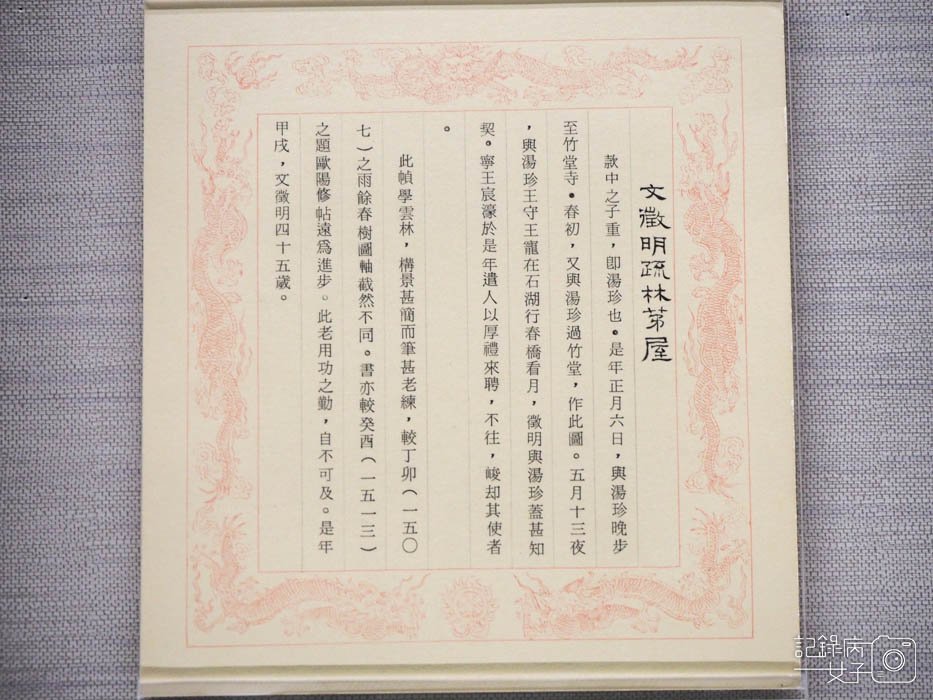 文徵明疏林茅屋
款中之子重，即湯珍也。是年正月六日，與湯珍晚步
至竹堂寺。春初，又與湯珍過竹堂，作此圖。五月十三夜
，與湯珍王守王寵在石湖行春橋看月，徵明與湯珍蓋甚知
契。寧王宸濠於是年遣人以厚禮來聘，不往，峻却其使者
。
此幀學雲林，構景甚簡而筆甚老練，較丁卯（一五〇
七）之雨餘春樹圖軸截然不同。書亦較癸酉（一五一三）
之題歐陽修帖遠爲進步。此老用功之勤，自不可及。是年
甲戌，文徵明四十五歲。
記錄病
女子